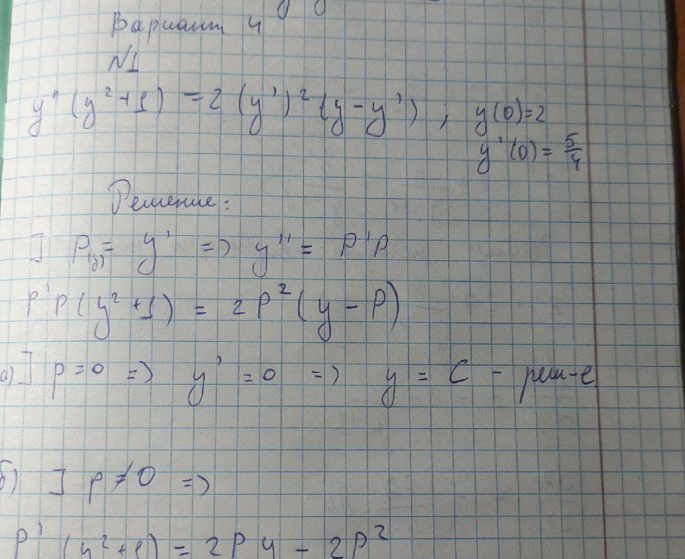 Вариант 4
№1
y'' (y² + 1) = 2 (y')² (y - y') ; y(0) = 2
y'(0) = 5/4
Решение:
] P(y) = y' => y'' = P'P
P'P (y² + 1) = 2P² (y - P)
а) ] p = 0 => y' = 0 => y = C - реш-е
б) ] p ≠ 0 =>
P' (y² + 1) = 2Py - 2P²